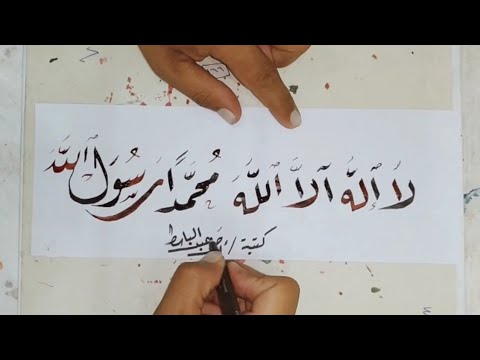 لاَ إلٰهَ آلاَّ اللَّهَ مُحَمَّدًا رَسُوَل اللَّهَ
كتبة / عبد الباسط